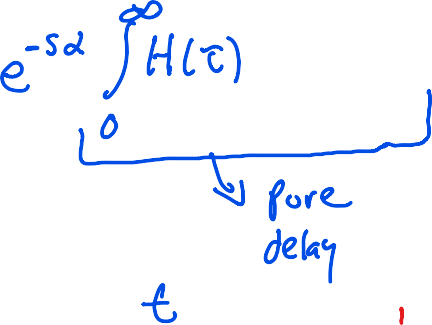 e^{-sα} ∫_0^∞ H(τ)
pure
delay
t